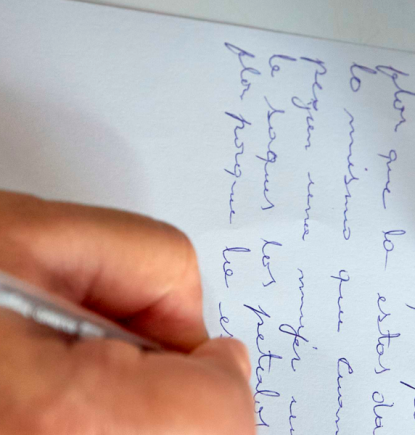 flor que la estas da
lo mismo que cuan
pegan una mujer
le saques los petalos
flor porque la es